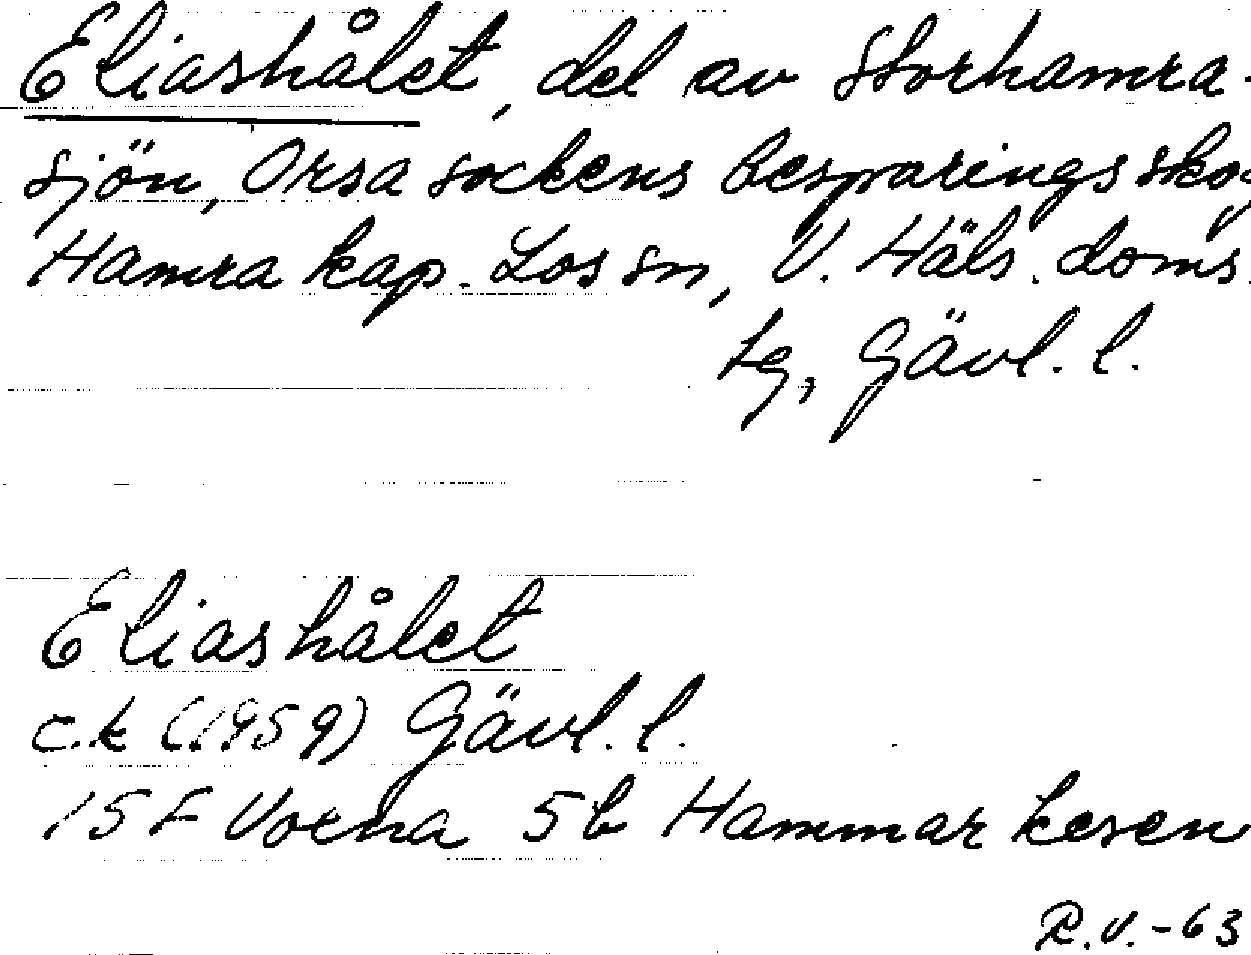 Eliashålet, del av Storhamra-
sjön, Orsa sockens besparingsskog
Hamra kap. Los sn, V. Häls. doms.
sg, Gävl. l.
Eliashålet
c.k (1959) Gävl. l.
15F Voxna 5b Hammarkesen
R.V.-63